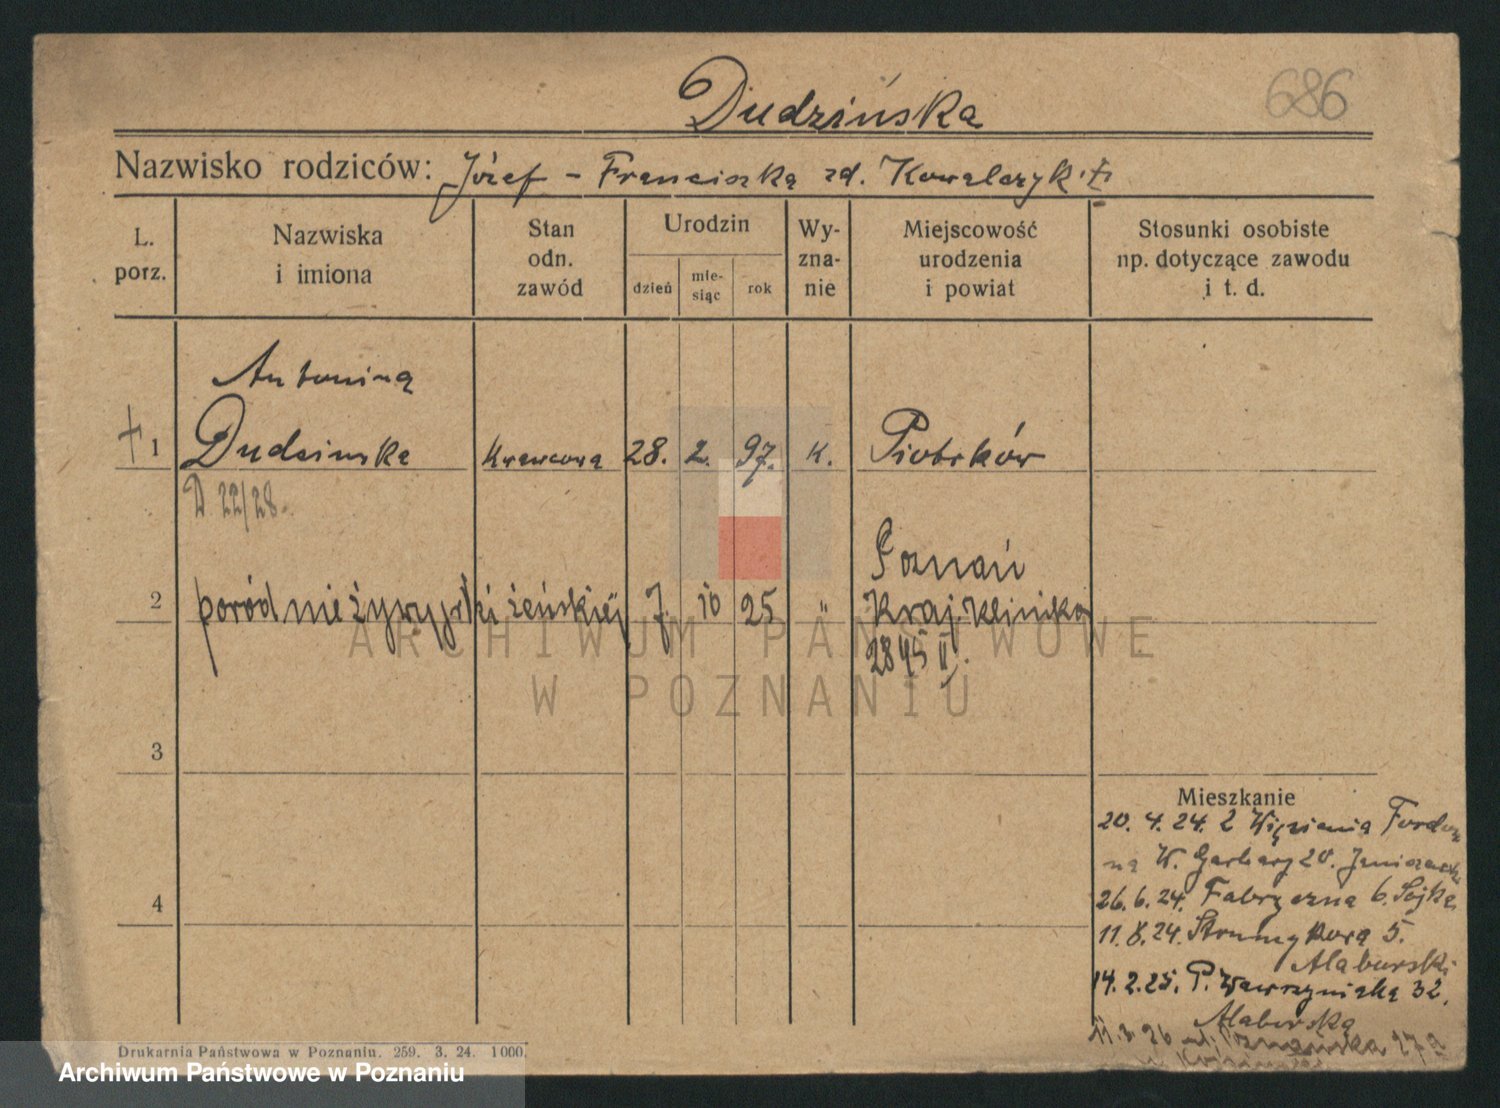 Dudzińska
686
Nazwisko rodziców: Józef - Franciszka zd. Kowalczyk
L. porz.
Nazwiska i imiona
Stan odn. zawód
Urodzin
dzień
mie-siąc
rok
Wy-zna-nie
Miejscowość urodzenia i powiat
Stosunki osobiste np. dotyczące zawodu i t. d.
Antonina
+ 1 Dudzinska Krawcowa 28. 2. 97. K. Piotrków
D 22/28.
Poznań
2 poród nieżywy płci żeńskiej 7. 10 25 " Kraj. Klinika
2845 II.
ARCHIWUM PAŃSTWOWE
W POZNANIU
3
Mieszkanie
20. 4. 24. z Więzienia Fordon
na W. Garbary 20.
4
26. 6. 24. Fabryczna 6. Sojka
11. 8. 24. Strumykowa 5.
Alaburski
14. 2. 25. P. Wawrzyniaka 32.
Alaburska
26 ul. Poznańska 27a
Drukarnia Państwowa w Poznaniu. 259. 3. 24. 1000.
Archiwum Państwowe w Poznaniu